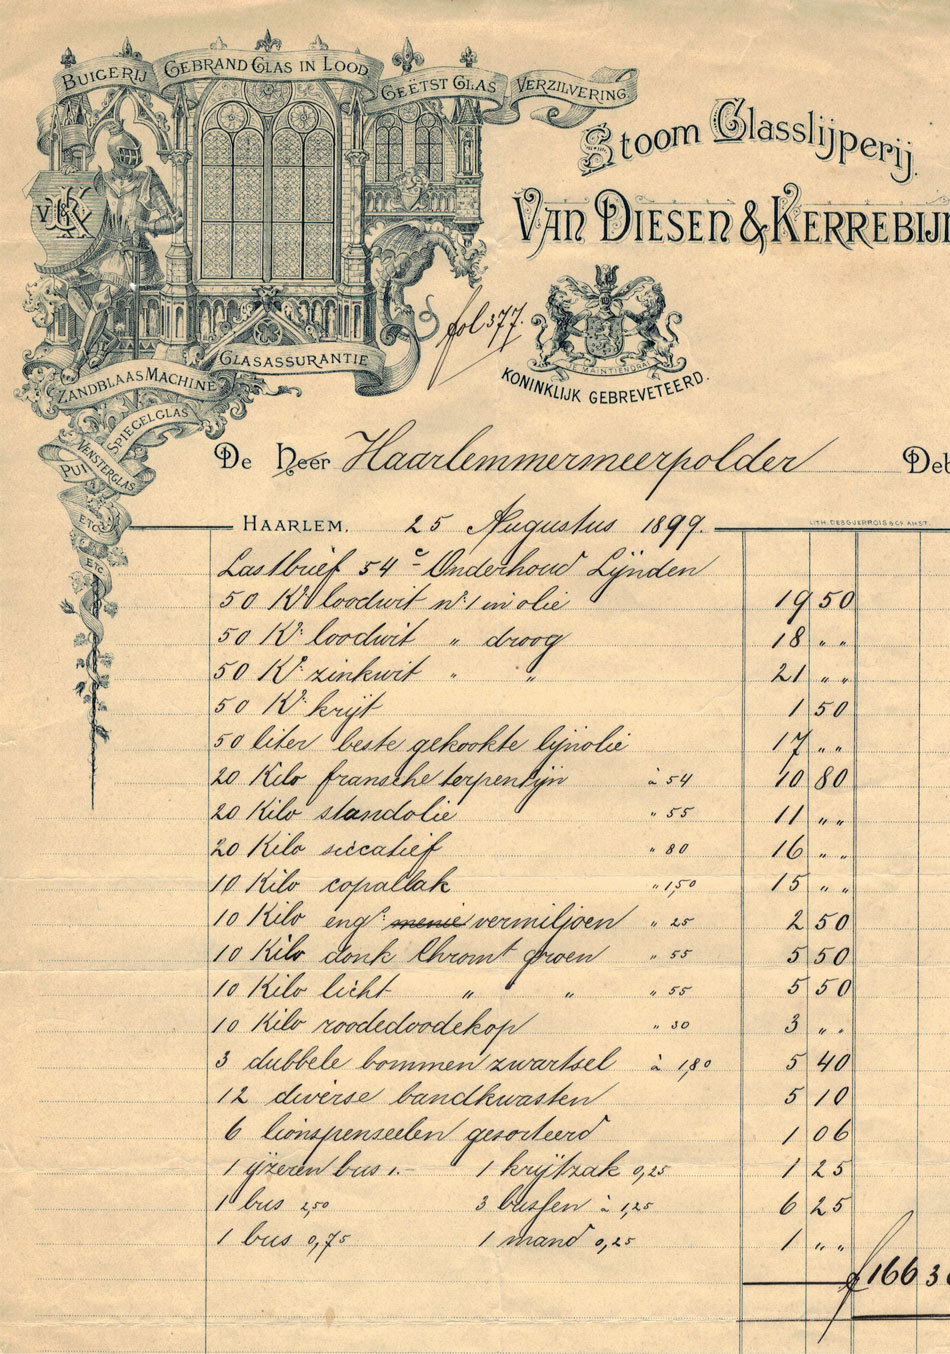 BUIGERIJ GEBRAND GLAS IN LOOD GEËTST GLAS VERZILVERING
Stoom Glasslijperij.
VAN DIESEN & KERREBIJ
VKD
fol 377.
GLASASSURANTIE
ZANDBLAAS MACHINE
SPIEGELGLAS
VENSTERGLAS
PUI
ETC.
ETC.
JE MAINTIENDRAI
KONINKLIJK GEBREVETEERD.
De Heer Haarlemmermeerpolder Deb
HAARLEM, 25 Augustus 1899.
LITH. DESGUERROIS & Co AMST.
Lastbrief 54e Onderhoud Lijnden
50 Ko loodwit no 1 in olie 19 50
50 Ko loodwit " droog 18 " "
50 Ko zinkwit " " 21 " "
50 Ko krijt 1 50
50 liter beste gekookte lijnolie 17 " "
20 Kilo fransche terpentijn à 54 10 80
20 Kilo standolie " 55 11 " "
20 Kilo siccatief " 80 16 " "
10 Kilo copallak " 1,50 15 " "
10 Kilo engs menie vermiljoen " 25 2 50
10 Kilo donk Chromt groen " 55 5 50
10 Kilo licht " " " 55 5 50
10 Kilo roodedoodekop " 30 3 " "
3 dubbele bommen zwartsel à 1,80 5 40
12 diverse bandkwasten 5 10
6 lionspenseelen gesorteerd 1 06
1 ijzeren bus 1.- 1 krijtzak 0,25 1 25
1 bus 2,50 3 bussen à 1,25 6 25
1 bus 0,75 1 mand 0,25 1 " "
f 166 3